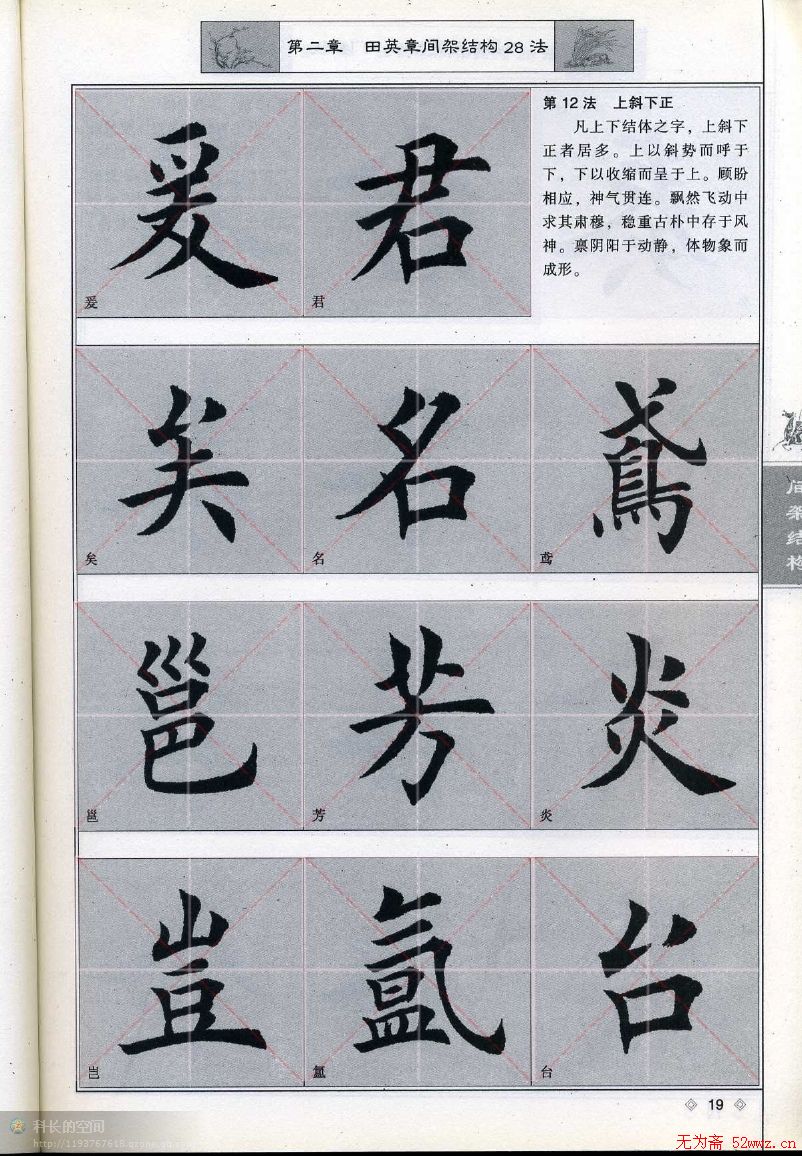 第二章 田英章间架结构28法
第12法 上斜下正
凡上下结体之字，上斜下
正者居多。上以斜势而呼于
下，下以收缩而呈于上。顾盼
相应，神气贯连。飘然飞动中
求其肃穆，稳重古朴中存于风
神。禀阴阳于动静，体物象而
成形。
爰 君
爰 君
矣 名 鸢
矣 名 鸢
邕 芳 炎
邕 芳 炎
豈 氳 台
岂 氲 台
结构
19
科长的空间
http://1193767618.qzone.qq.com
无为斋 52wwz.cn